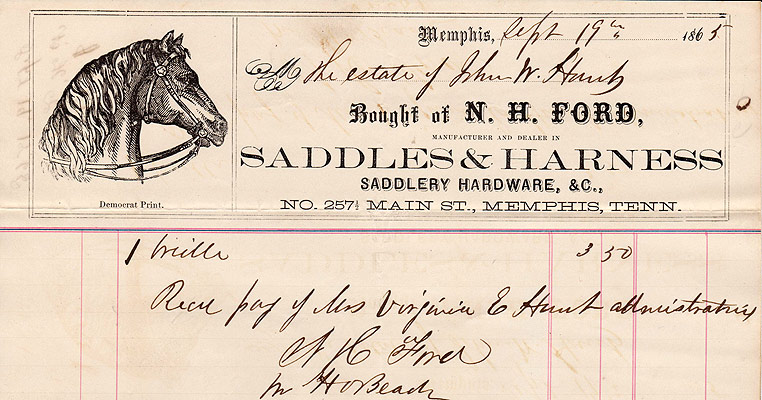 Memphis, Sept 19th 1865
M The estate of John W. Hunt
Bought of N. H. FORD,
MANUFACTURER AND DEALER IN
SADDLES & HARNESS
SADDLERY HARDWARE, &C.,
NO. 257½ MAIN ST., MEMPHIS, TENN.
Democrat Print.
1 Bridle 3 50
Recd pay of Mrs Virginia E Hunt administratrix
N H Ford